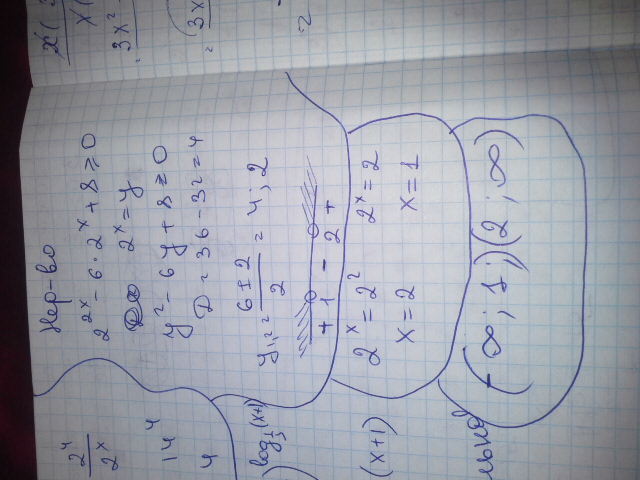 Нер-во
2^{2x} - 6 · 2^x + 8 ≥ 0
2^x = y
y² - 6y + 8 ≥ 0
D = 36 - 32 = 4
y₁,₂ = \frac{6 ± 2}{2} = 4; 2
+ 1 - 2 +
2^x = 2² 2^x = 2
x = 2 x = 1
(-∞; 1;)(2; ∞)
\frac{2^4}{2^x}
14^4
4
log_{\frac{1}{3}}(x+1)
(x+1)
3x²
3x